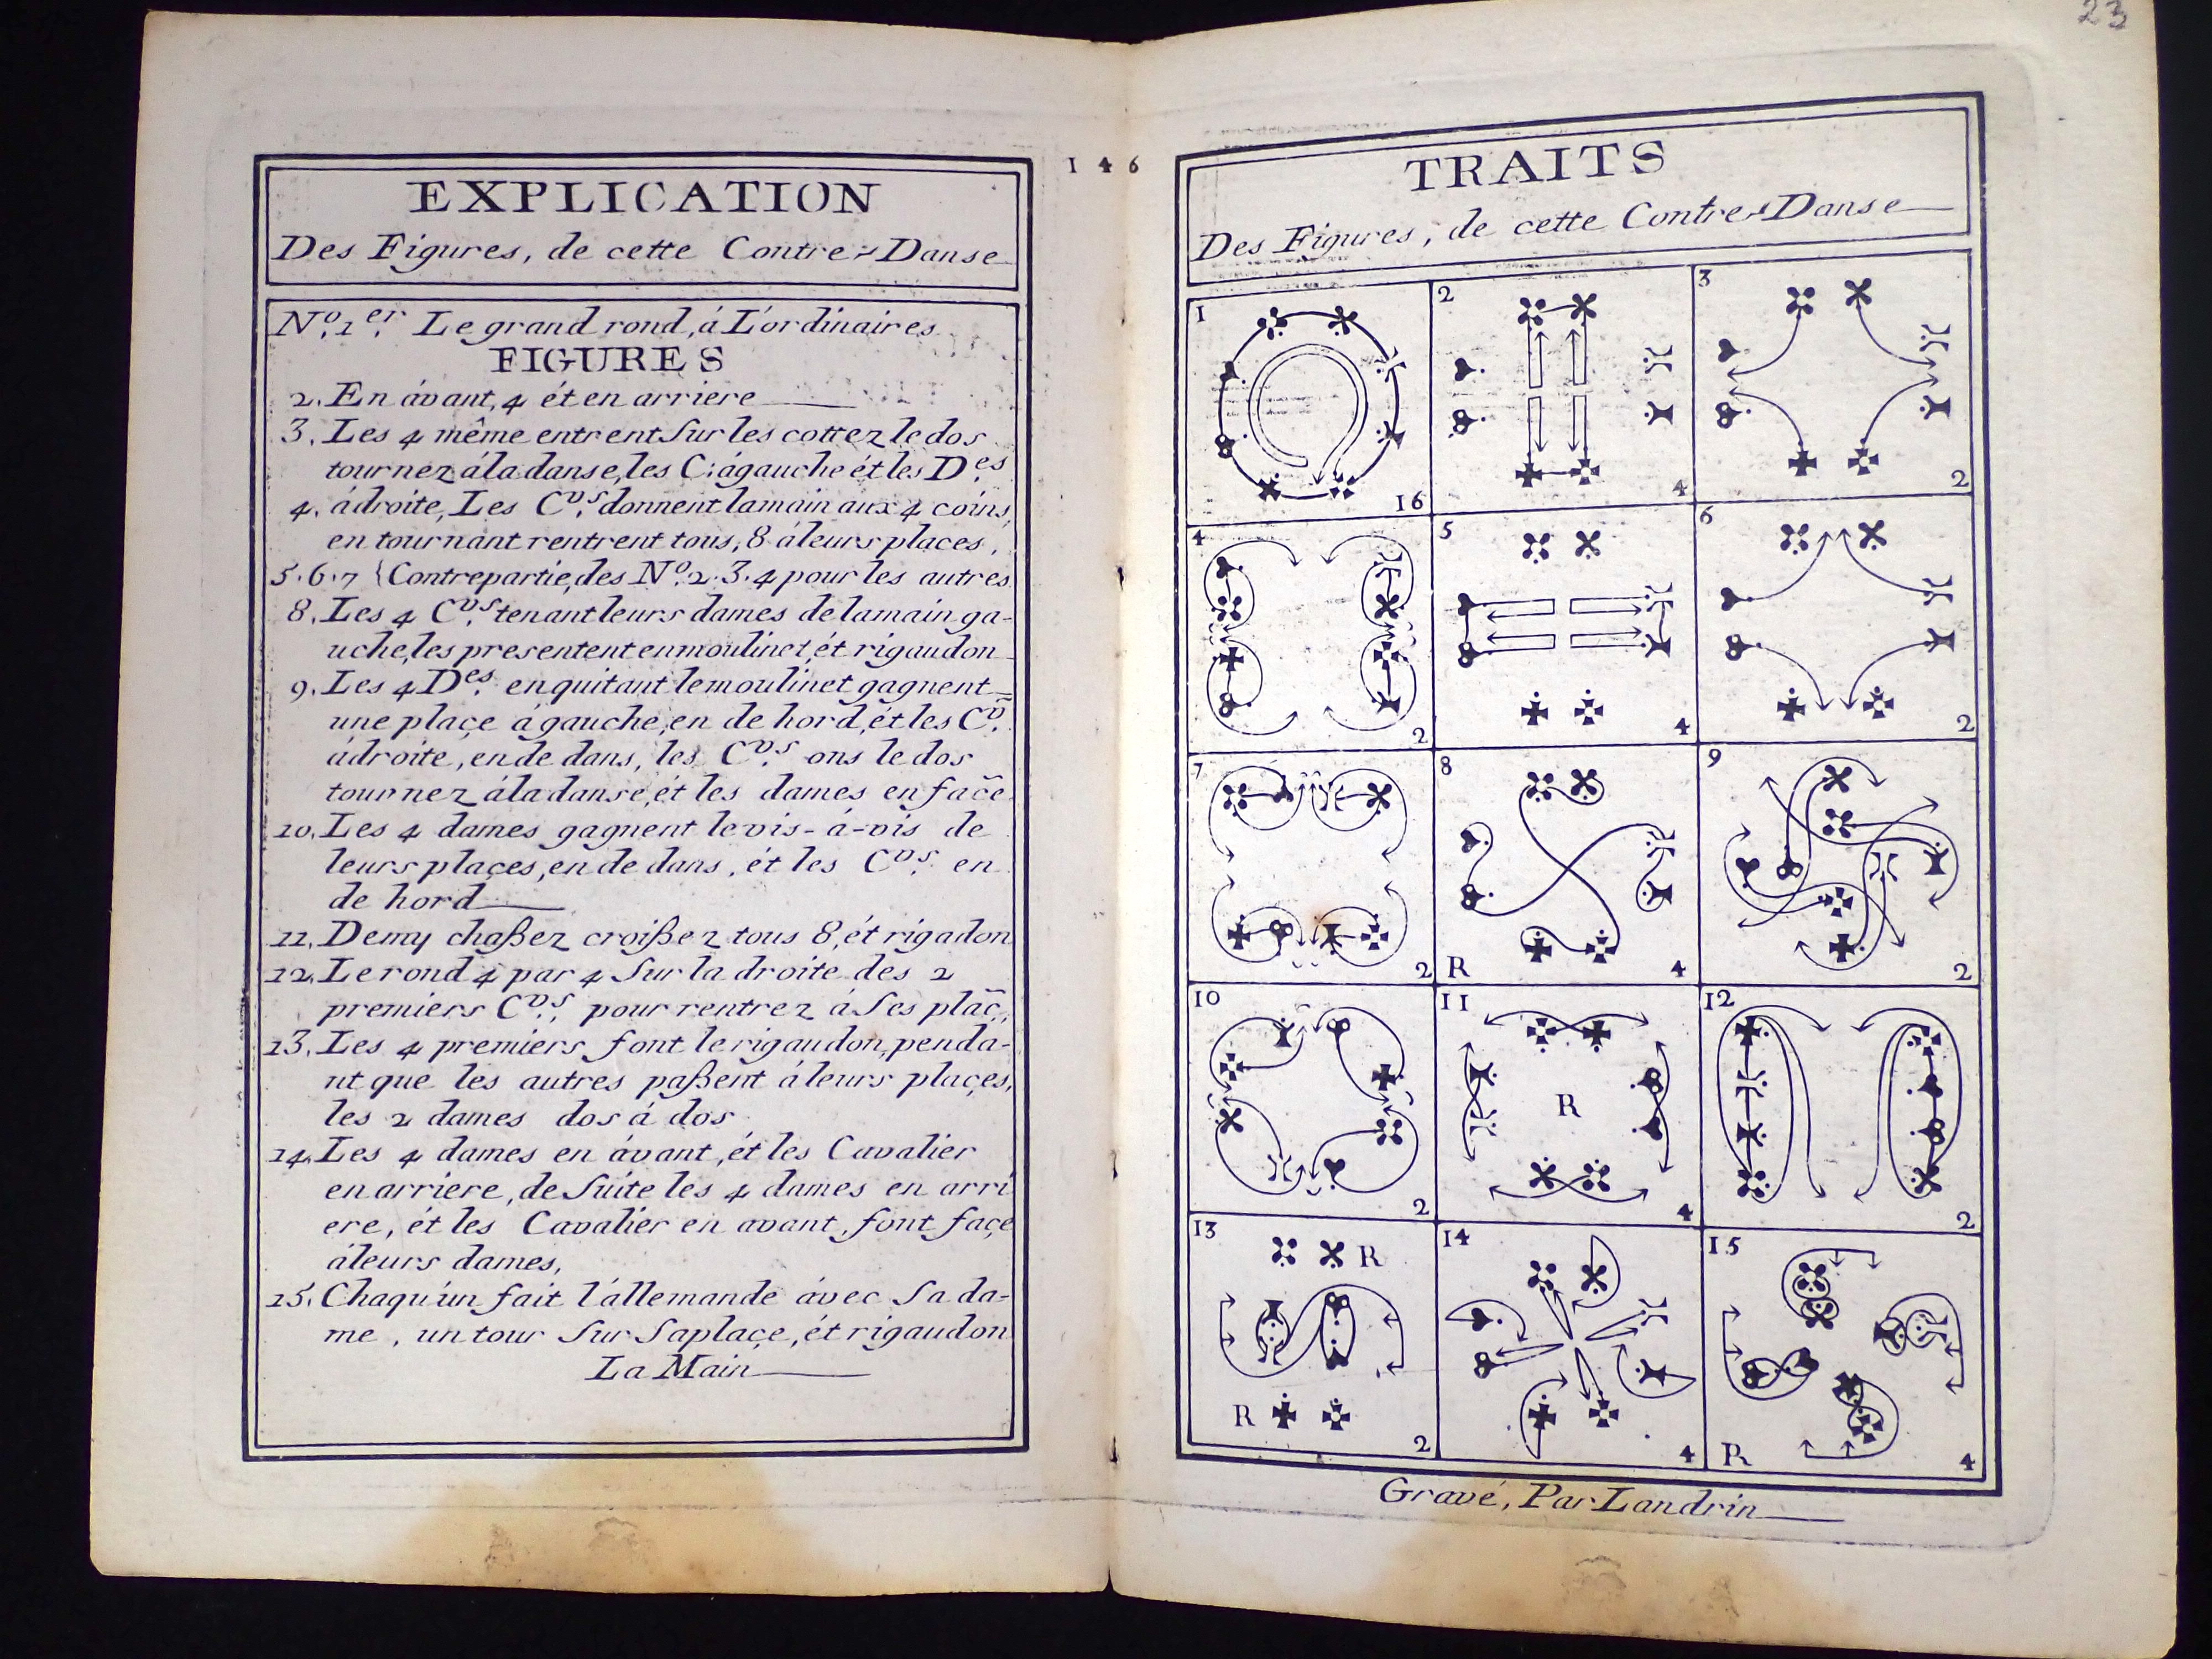 EXPLICATION
Des Figures, de cette Contre-Danse
N.º 1.er Le grand rond, á L'ordinaires
FIGURES
2. En ávant, 4 ét en arriere
3. Les 4 même entrent sur les cottez le dos
tournez á la danse, les C: á gauche ét les D.es
4. á droite, Les C.vs donnent la main aux 4 coins,
en tournant rentrent tous, 8 á leurs places,
5.6.7 {Contrepartie, des N.º 2.3.4 pour les autres
8. Les 4 C.vs tenant leurs dames de la main ga-
uche, les presentent en moulinet, ét rigaudon
9. Les 4 D.es en quitant le moulinet gagnent
une plaçe á gauche, en de hord, ét les C.v
á droite, en de dans, les C.vs ons le dos
tournez á la danse, ét les dames en façe
10. Les 4 dames gagnent le vis-á-vis de
leurs plaçes, en de dans, ét les C.vs en
de hord
11. Demy chaßez croißez tous 8, ét rigadon
12. Le rond 4 par 4 sur la droite des 2
premiers C.vs, pour rentrez á ses plac̃.,
13. Les 4 premiers font le rigaudon, penda-
nt que les autres paßent á leurs plaçes,
les 2 dames dos á dos
14. Les 4 dames en ávant, ét les Cavalier
en arriere, de suite les 4 dames en arri
ere, ét les Cavalier en avant, font façe
á leurs dames,
15. Chaqu'ún fait l'állemande ávec sa da-
me, un tour sur sa plaçe, ét rigaudon
La Main
146
23
TRAITS
Des Figures, de cette Contre-Danse
1 16
2 4
3 2
4 2
5 4
6 2
7 2
8 R 4
9 2
10 2
11 R 4
12 2
13 R R 2
14 4
15 R 4
Gravé, Par Landrin